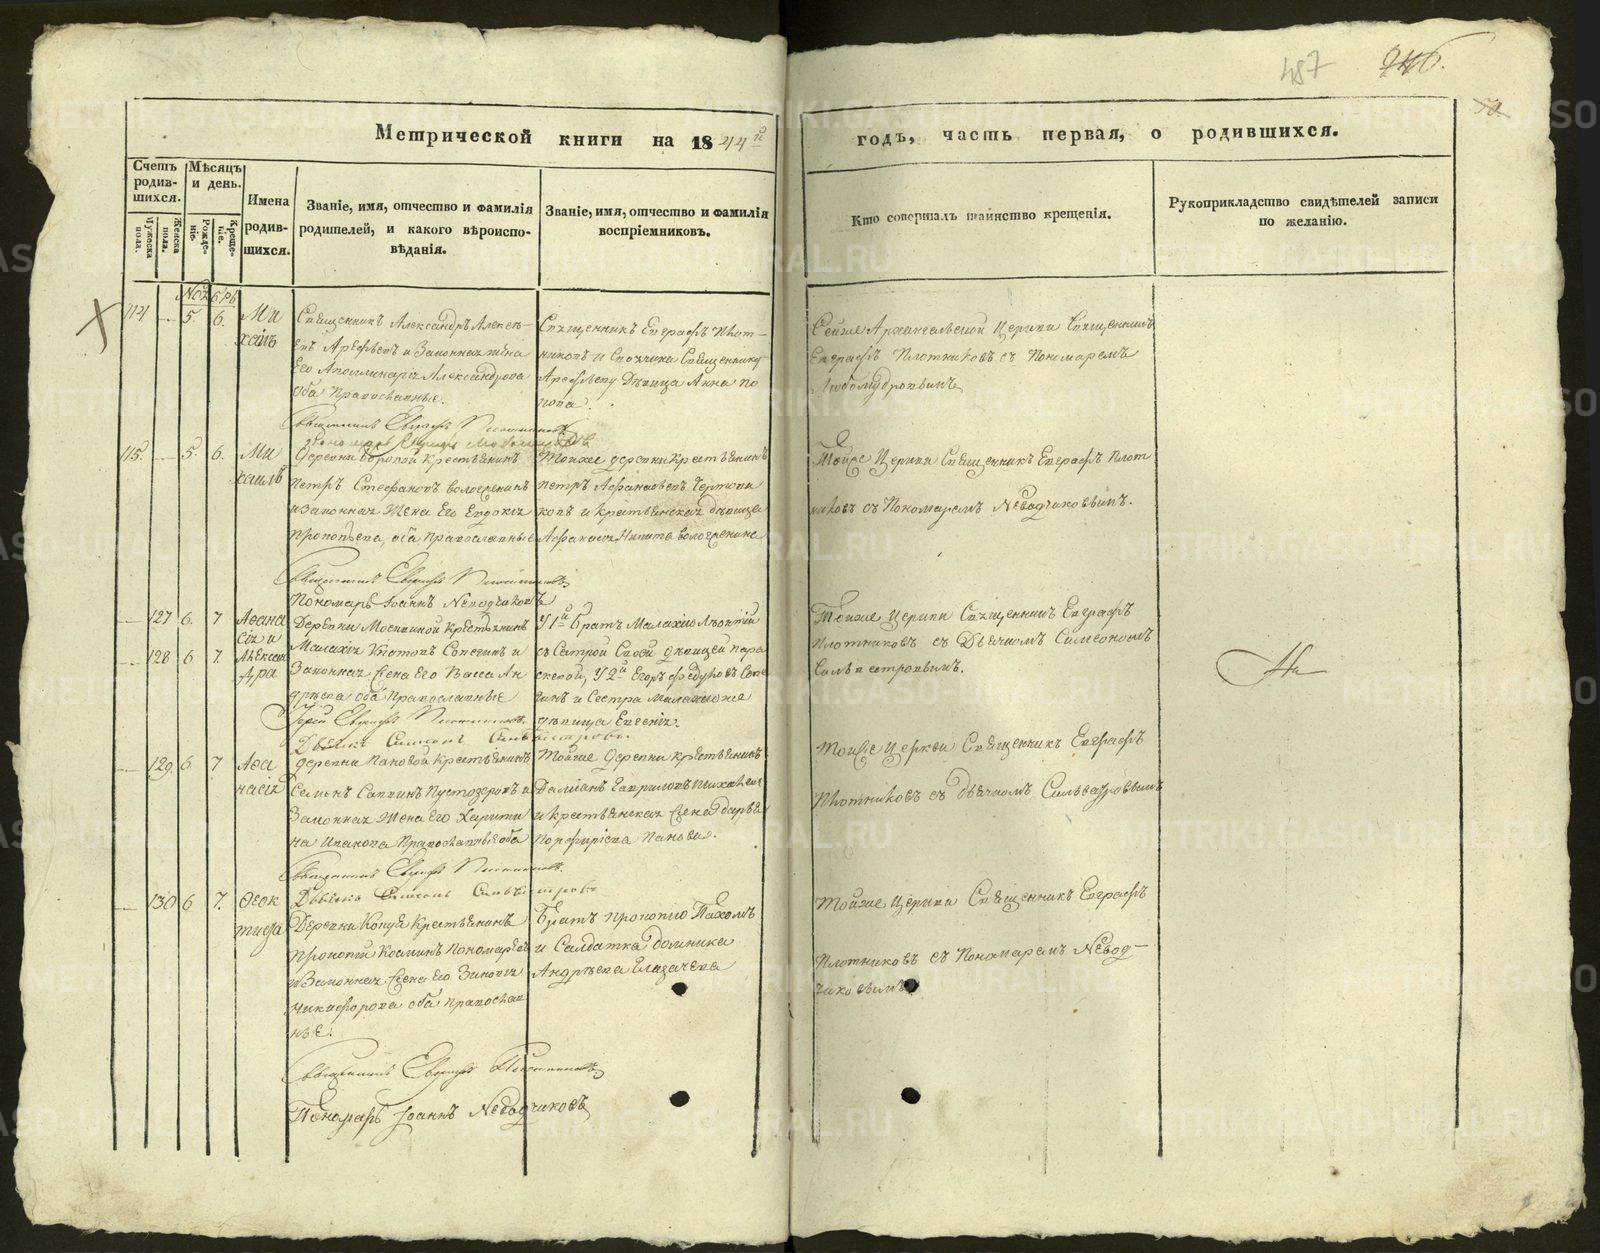 487 246.
Метрической книги на 1844й
годъ, часть первая, о родившихся.
Счетъ родив-шихся.
Мужеска пола.
Женска пола.
Мѣсяцъ и день.
Рожде-ніе.
Креще-ніе.
Имена родив-шихся.
Званіе, имя, отчество и фамилія
родителей, и какого вѣроиспо-
вѣданія.
Званіе, имя, отчество и фамилія
воспріемниковъ.
Кто совершалъ таинство крещенія.
Рукоприкладство свидѣтелей записи
по желанію.
Ноябрь
114 5. 6. Ми
хаилъ
Священникъ Александръ Алексѣ-
евъ Арефьевъ и Законная жена
Его Аполлинарія Александрова
оба православные.
Священникъ Евграфъ Плот-
никовъ и Своячина Священнику
Арефьеву Дѣвица Анна По
пова.
Сейже Архангельской Церкви Священникъ
Евграфъ Плотниковъ съ Пономаремъ
Любомудровымъ
Священникъ Евграфъ Плотниковъ
115. 5. 6. Ми
хаилъ
Деревни Боровой Крестьянинъ
Петръ Стефановъ Вологженинъ
и Законная Жена Его Евдокія
Прокопьева, оба православные
Тойже деревни Крестьянинъ
Петръ Афанасьевъ
и Крестьянская дѣвица
Тойже Церкви Священникъ Евграфъ Плот
никовъ съ Пономаремъ Неводчиковымъ.
Священникъ Евграфъ Плотниковъ
Пономарь Іоаннъ Неводчиковъ
127 6. 7 Афана
сія и
128 6 7. Алексан
дра
Деревни Мосиной Крестьянинъ
Малахія
Законная Жена Его Васса Ан
дрѣева оба Православные
У 1й братъ Малахію Леонтій
съ Сестрой Своей дѣвицей Пара
скевой, У 2й Егоръ Федуловъ
и Сестра Малахію же
дѣвица Евгенія.
Тойже Церкви Священникъ Евграфъ
Плотниковъ съ Дьячкомъ Симеономъ
Сильвестровымъ.
Іерей Евграфъ Плотниковъ.
Дьячекъ Симеонъ Сильвестровъ.
129. 6 7 Афа
насія
деревни Пановой Крестьянинъ
Семенъ Саввинъ Пустозеровъ и
Законная Жена Его Харити
на Иванова Православные оба
Тойже Деревни Крестьянинъ
Даміанъ Гавриловъ
и Крестьянская Жена Дарья
Порфиріева Панова.
Тойже Церкви Священникъ Евграфъ
Плотниковъ съ дьячкомъ Сильвестровымъ
Священникъ Евграфъ Плотниковъ.
Дьячекъ Симеонъ Сильвестровъ
130 6 7. Феок
тиста
Деревни Крестьянинъ
Прокопій Косминъ Пономаревъ
и Законная Жена Его Зиновія
Никифорова оба Православ
ные.
Братъ Прокопію Пахомъ
и Салдатка Домника
Андрѣева Глазачева
Тойже Церкви Священникъ Евграфъ
Плотниковъ съ Пономаремъ Невод-
чиковымъ
Священникъ Евграфъ Плотниковъ
Пономарь Іоаннъ Неводчиковъ
METRIKI.GASO-URAL.RU